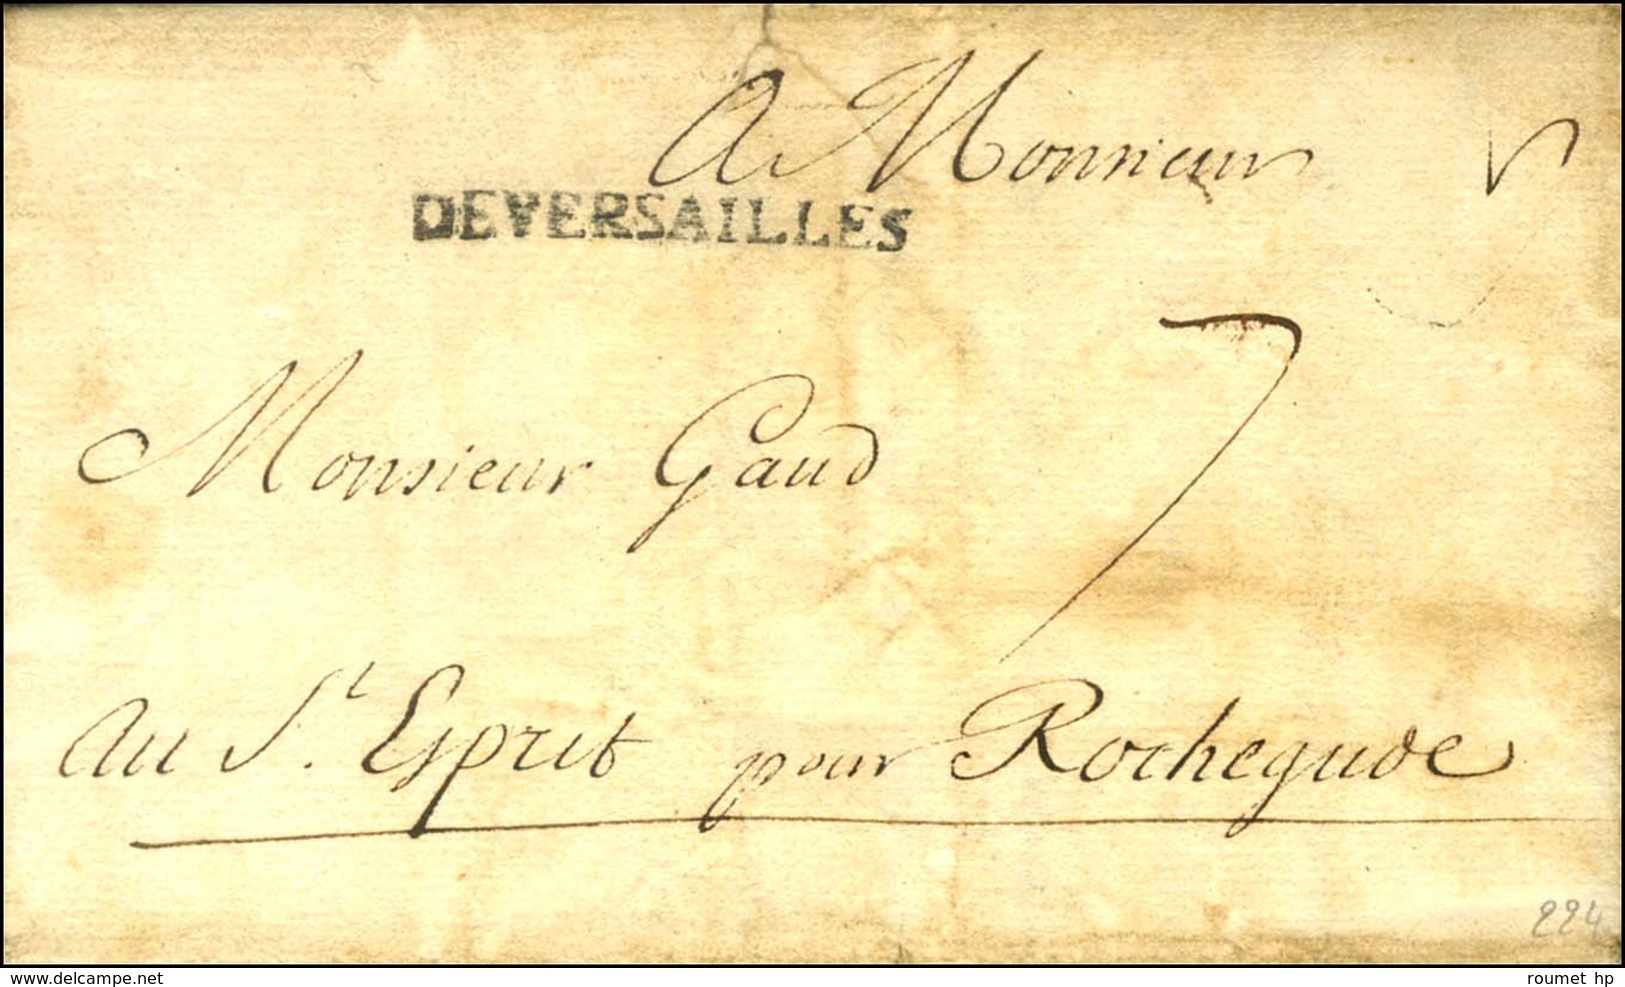 A Monsieur
DEVERSAILLES
7
Monsieur Gaud
au St. Esprit pour Rochegude
224
www.delcampe.net
roumet hp